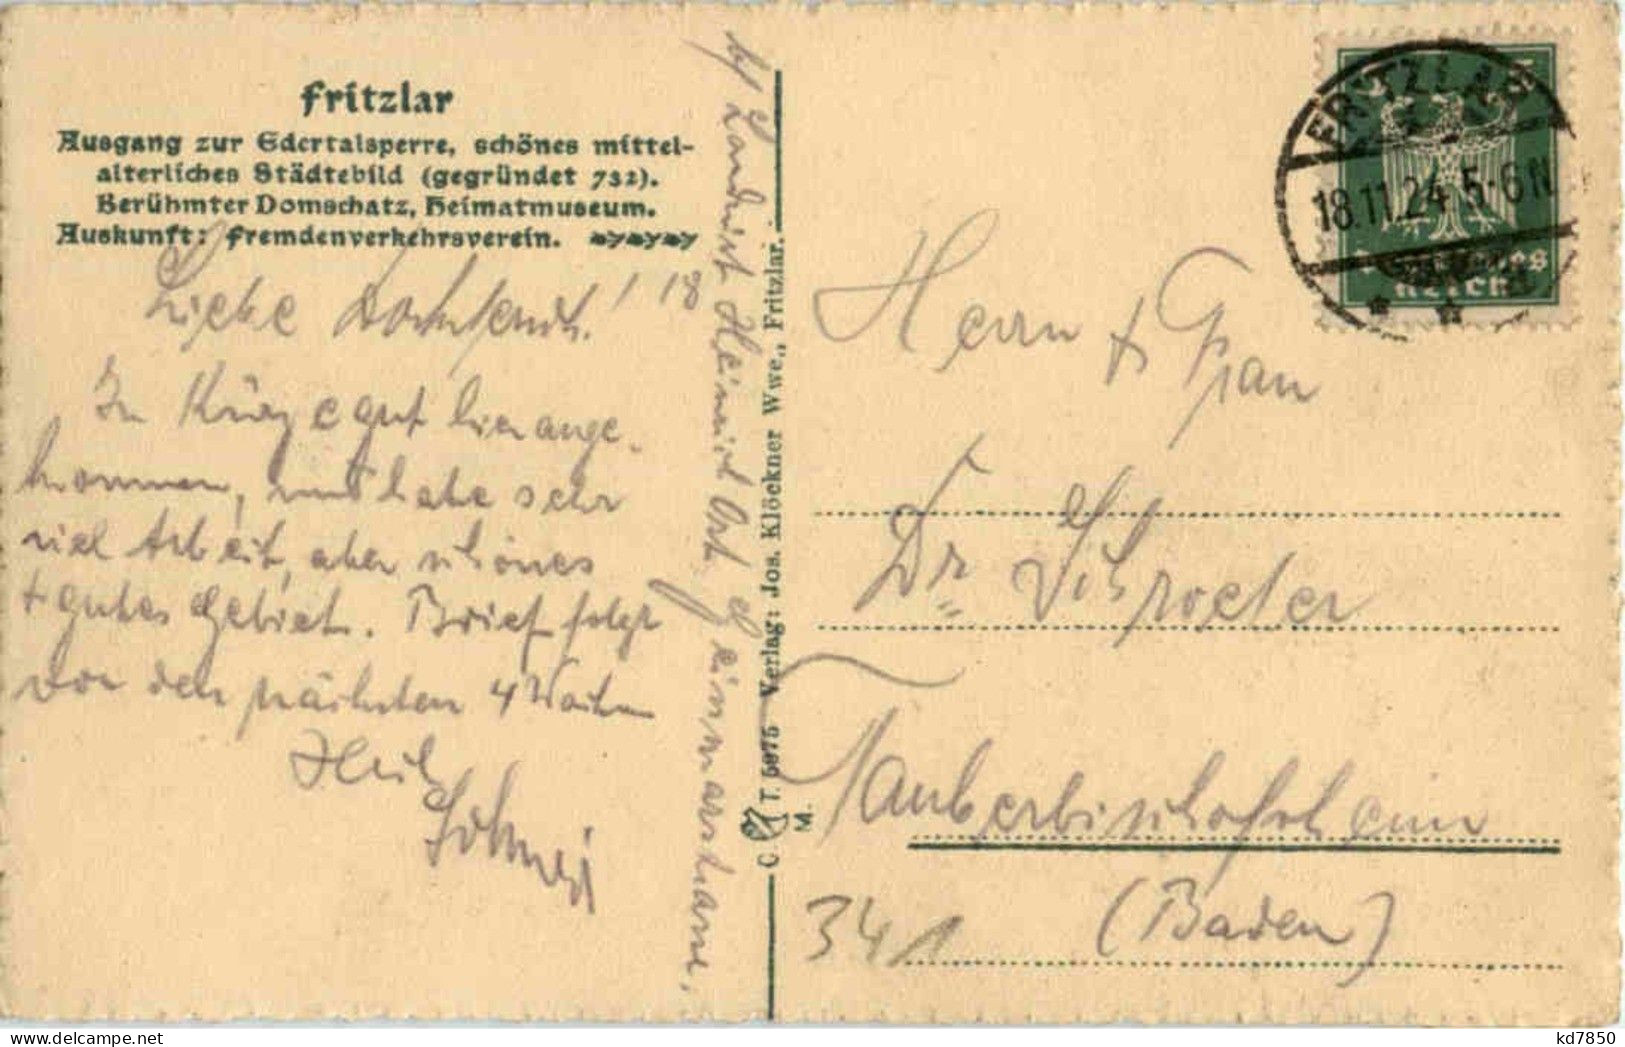 Fritzlar
Ausgang zur Edertalsperre, schönes mittel-
alterliches Städtebild (gegründet 732).
Berühmter Domschatz, Heimatmuseum.
Auskunft: Fremdenverkehrsverein.
Liebe ! 18
In Kürze gut hier ange-
kommen, und habe sehr
viel Arbeit, aber schönes
+ gutes Gebiet. Brief folgt
von den nächsten 4 Wochen
Heil
Landwirt Heinrich
C T. 5975 Verlag: Jos. Klöckner Wwe., Fritzlar.
M.
FRITZLAR
18.11.24 5-6 N
5
Deutsches
Reich
Herrn + Frau
Dr Schroeter
Tauberbischofsheim
(Baden)
341
kd7850